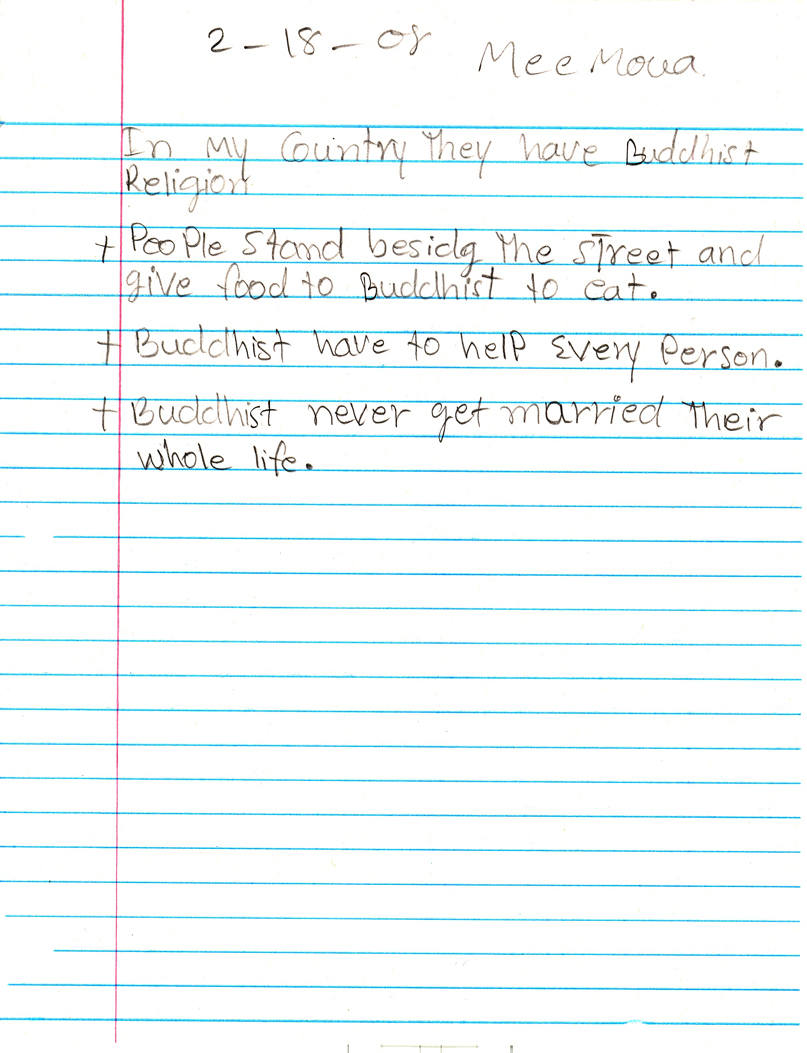 2-18-08 Mee Moua.
In My Country They have Buddhist
Religion
+ PeoPle Stand besidg The street and
give food to Buddhist to eat.
+ Buddhist have to help Every Person.
+ Buddhist never get married Their
whole life.